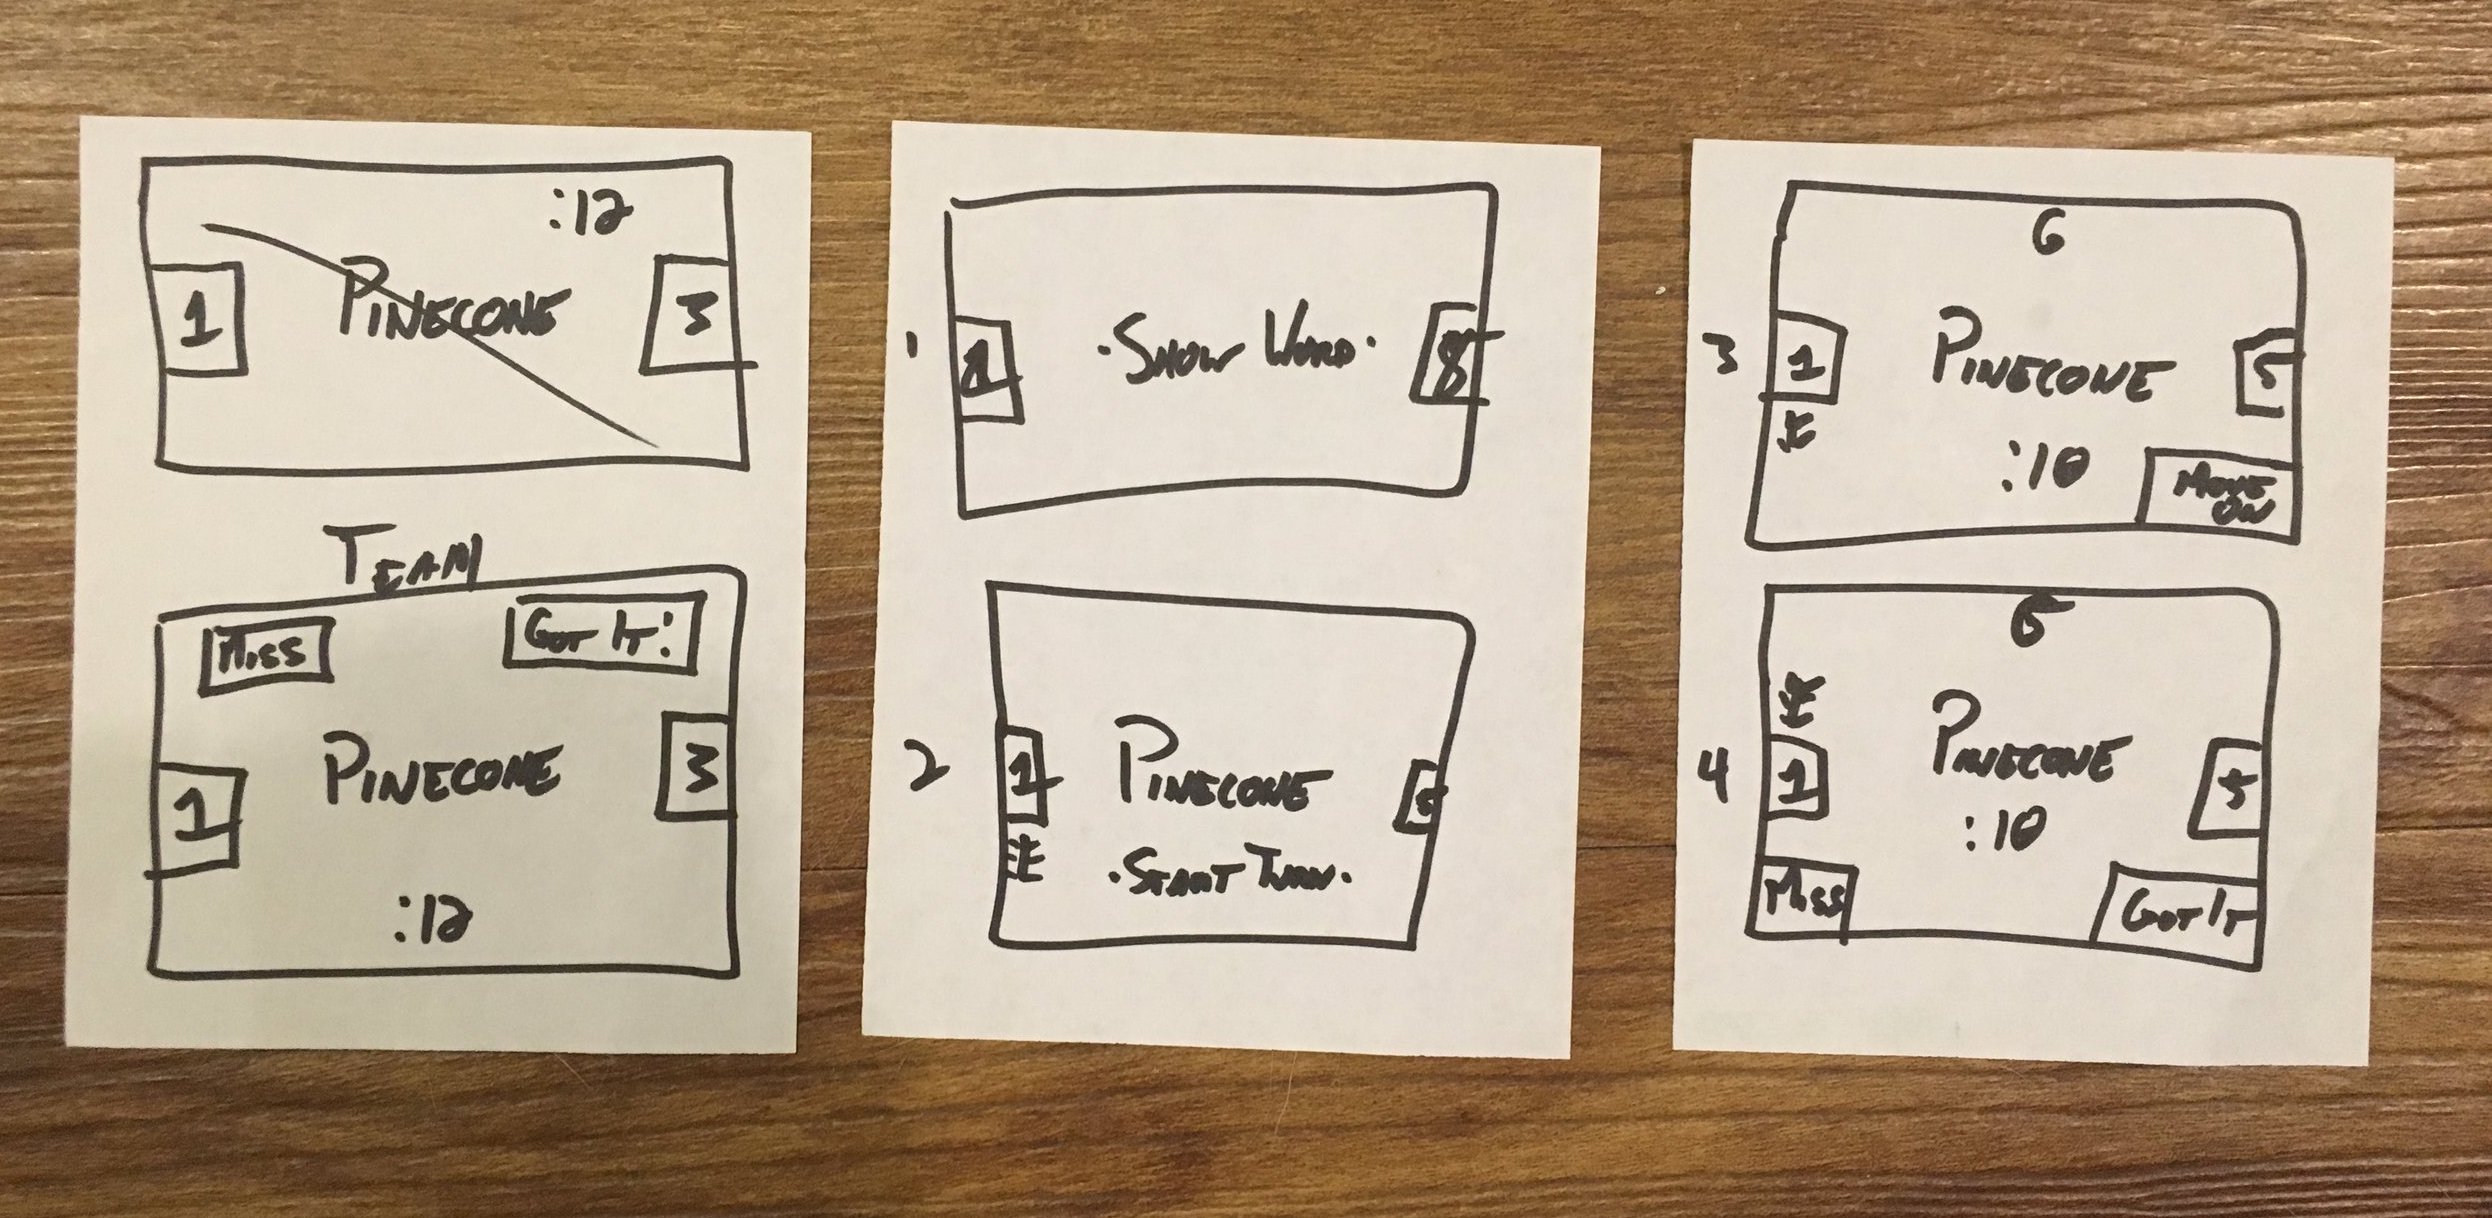 :12
1 PINECONE 3
TEAM
MISS GOT IT!
1 PINECONE 3
:12
1 · SHOW WORD ·
2 1 PINECONE 5
· START TURN ·
6
3 1 PINECONE 5
:10 MOVE ON
4 1 PINECONE 5
:10
MISS GOT IT